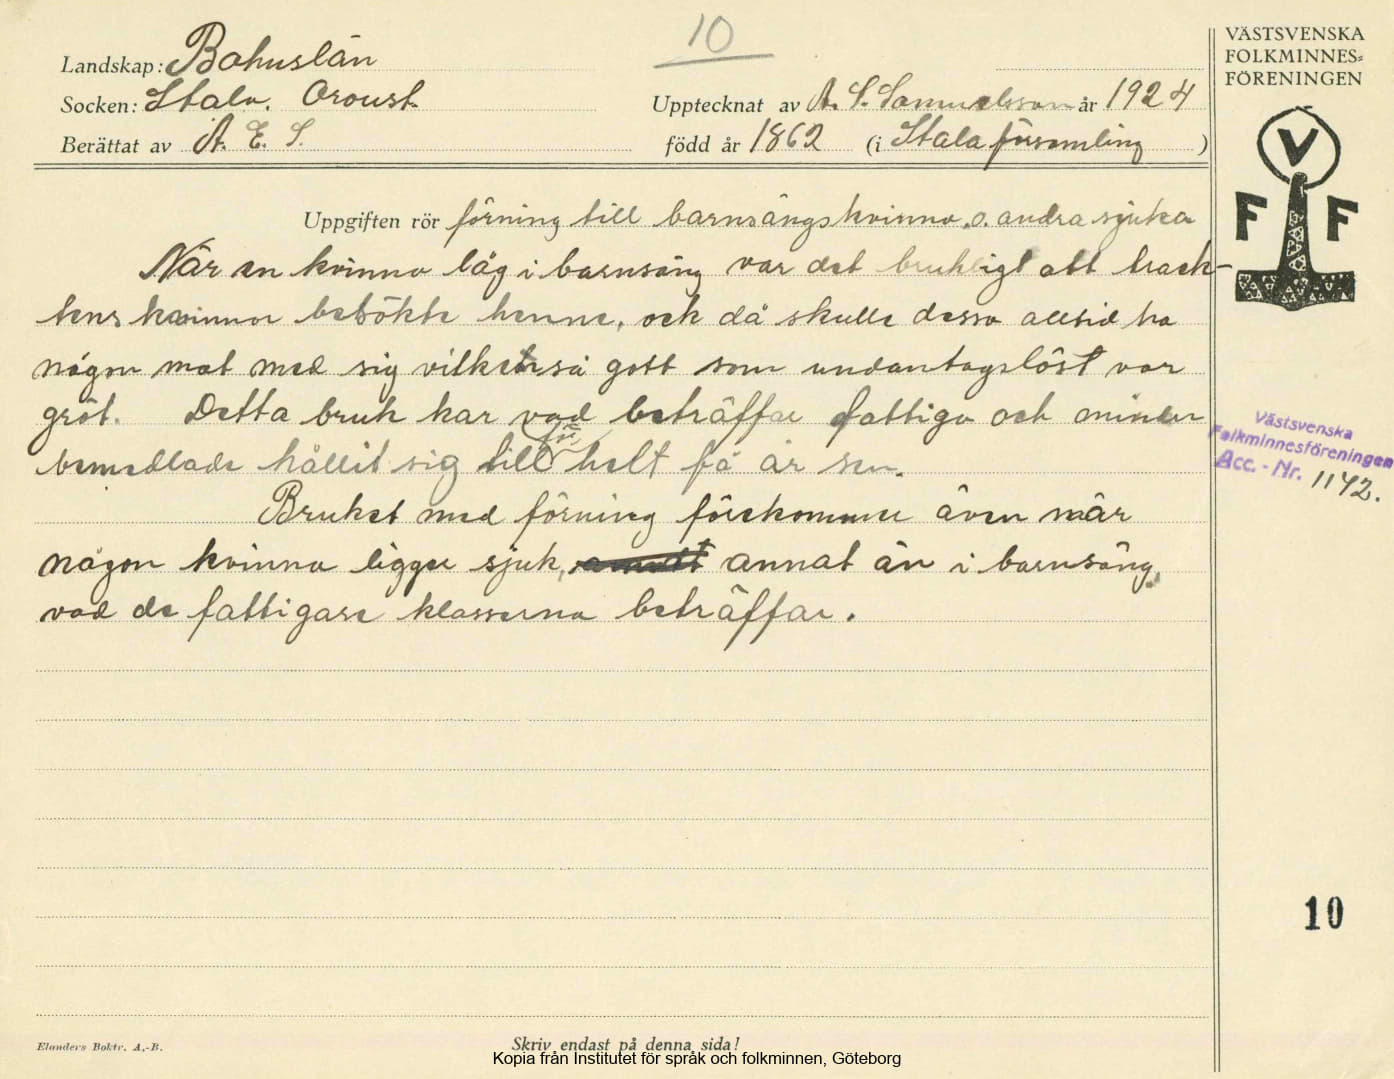 10
VÄSTSVENSKA
FOLKMINNES=
FÖRENINGEN
Landskap: Bohuslän
Socken: Stala. Oroust.
Upptecknat av A. S. Samuelsson år 1924
Berättat av A. E. S.
född år 1862 (i Stala församling )
V
F F
Uppgiften rör förning till barnsängskvinna o. andra sjuka
När en kvinna låg i barnsäng var det brukligt att track-
tens kvinnor besökte henne, och då skulle dessa alltid ha
någon mat med sig vilket så gott som undantagslöst var
gröt. Detta bruk har vad beträffar fattiga och mindre
bemedlade hållit sig till för helt få år sen.
Bruket med förning förekommer även när
någon kvinna ligger sjuk, annat än i barnsäng,
vad de fattigare klasserna beträffar.
Västsvenska
Folkminnesföreningen
Acc. - Nr. 1142.
10
Elanders Boktr. A.-B.
Skriv endast på denna sida!
Kopia från Institutet för språk och folkminnen, Göteborg